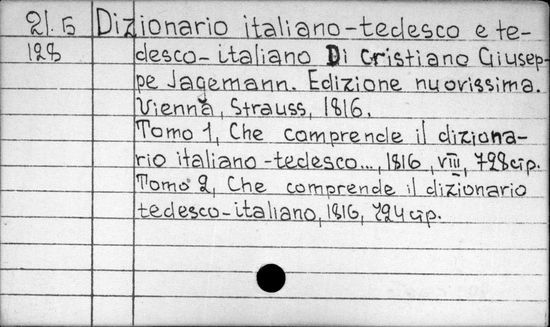 21.5 Dizionario italiano-tedesco e te-
128 desco-italiano Di Cristiano Giusep-
pe Jagemann. Edizione nuovissima.
Vienna, Strauss, 1816.
Tomo 1, Che comprende il diziona-
rio italiano-tedesco..., 1816, VIII, 728 стр.
Tomo 2, Che comprende il dizionario
tedesco-italiano, 1816, 724 стр.